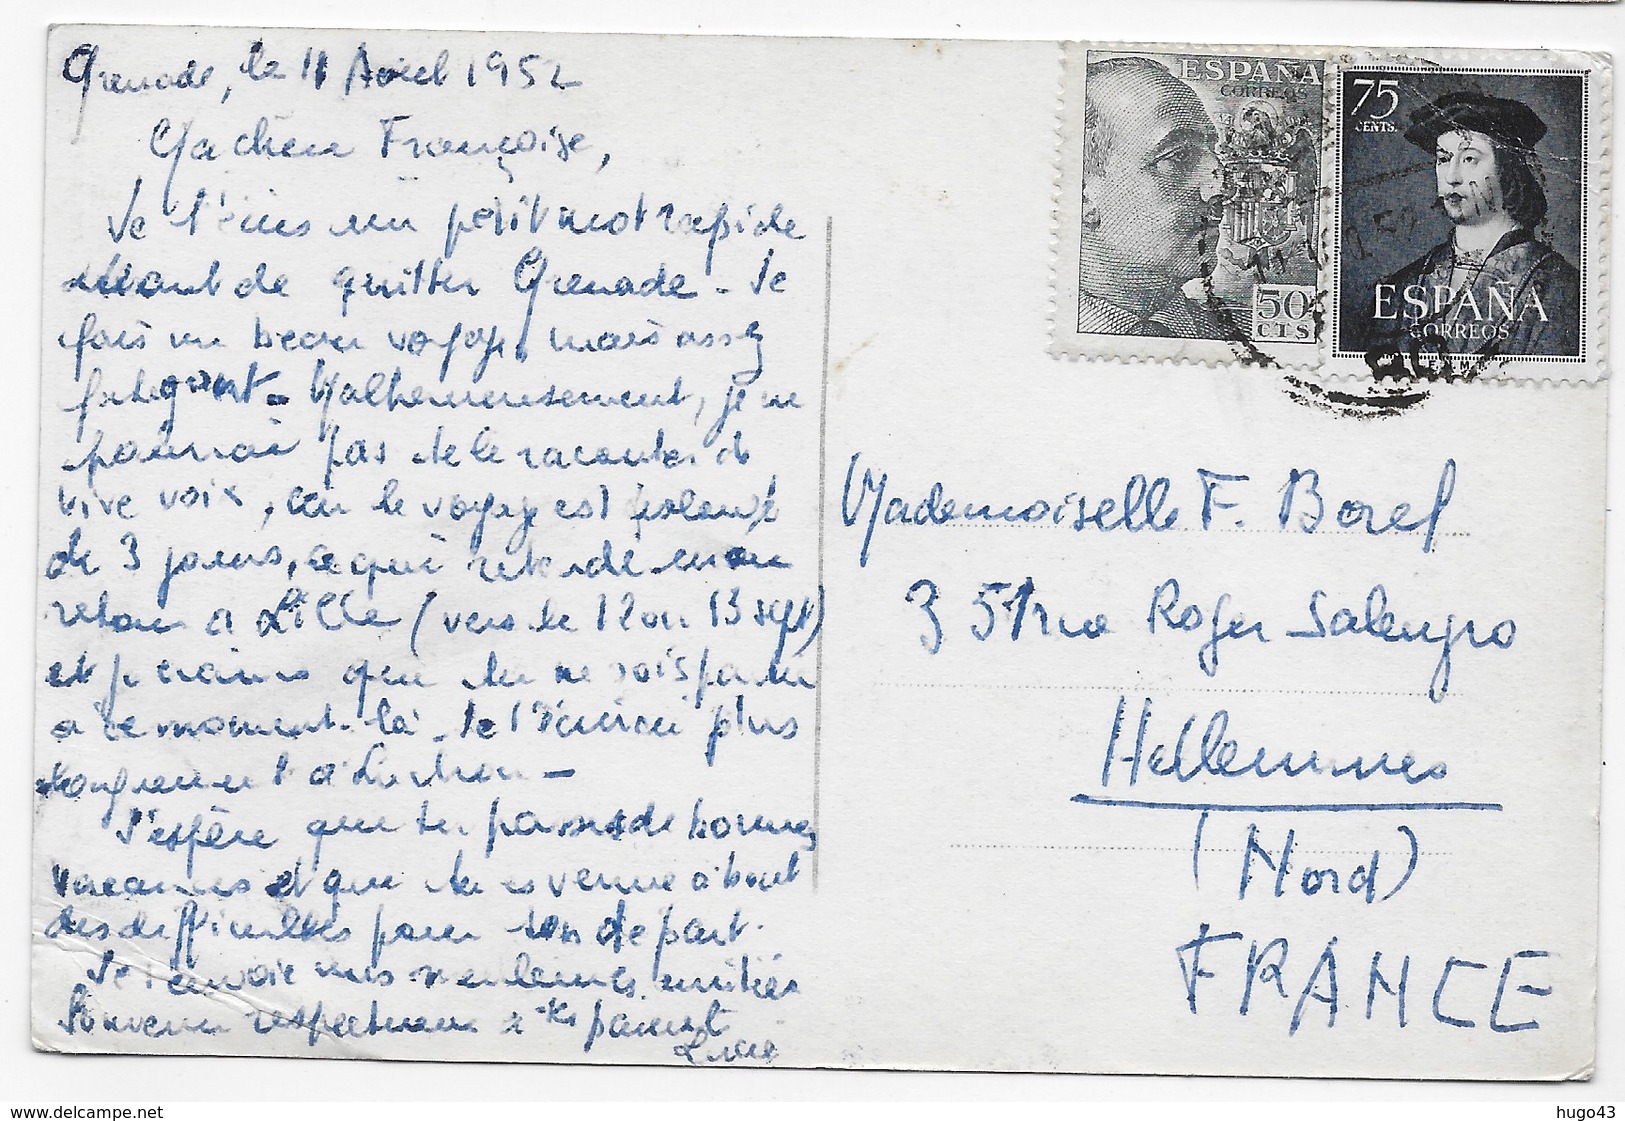 Grenade, le 11 Avril 1952
Ma chère Françoise,
Je t'écris un petit mot rapide
avant de quitter Grenade - Je
fais un beau voyage, mais assez
fatigant - Malheureusement, je ne
pourrai pas te le raconter de
vive voix, car le voyage est prolongé
de 3 jours, ce qui retarde mon
retour à Lille (vers le 12 ou 13 sept)
et je crains que tu ne sois partie
à ce moment-là - Je t'écrirai plus
longuement à Luchon -
J'espère que tu passes de bonnes
vacances et que tu es venue à bout
des difficultés pour ton départ.
Je t'envoie mes meilleures amitiés
Souvenir respectueux à tes parents
Lucie
ESPAÑA
CORREOS
50
CTS
75
CENTS.
ESPAÑA
CORREOS
Mademoiselle F. Borel
351 rue Roger Salengro
Hellemmes
(Nord)
FRANCE
www.delcampe.net
hugo43